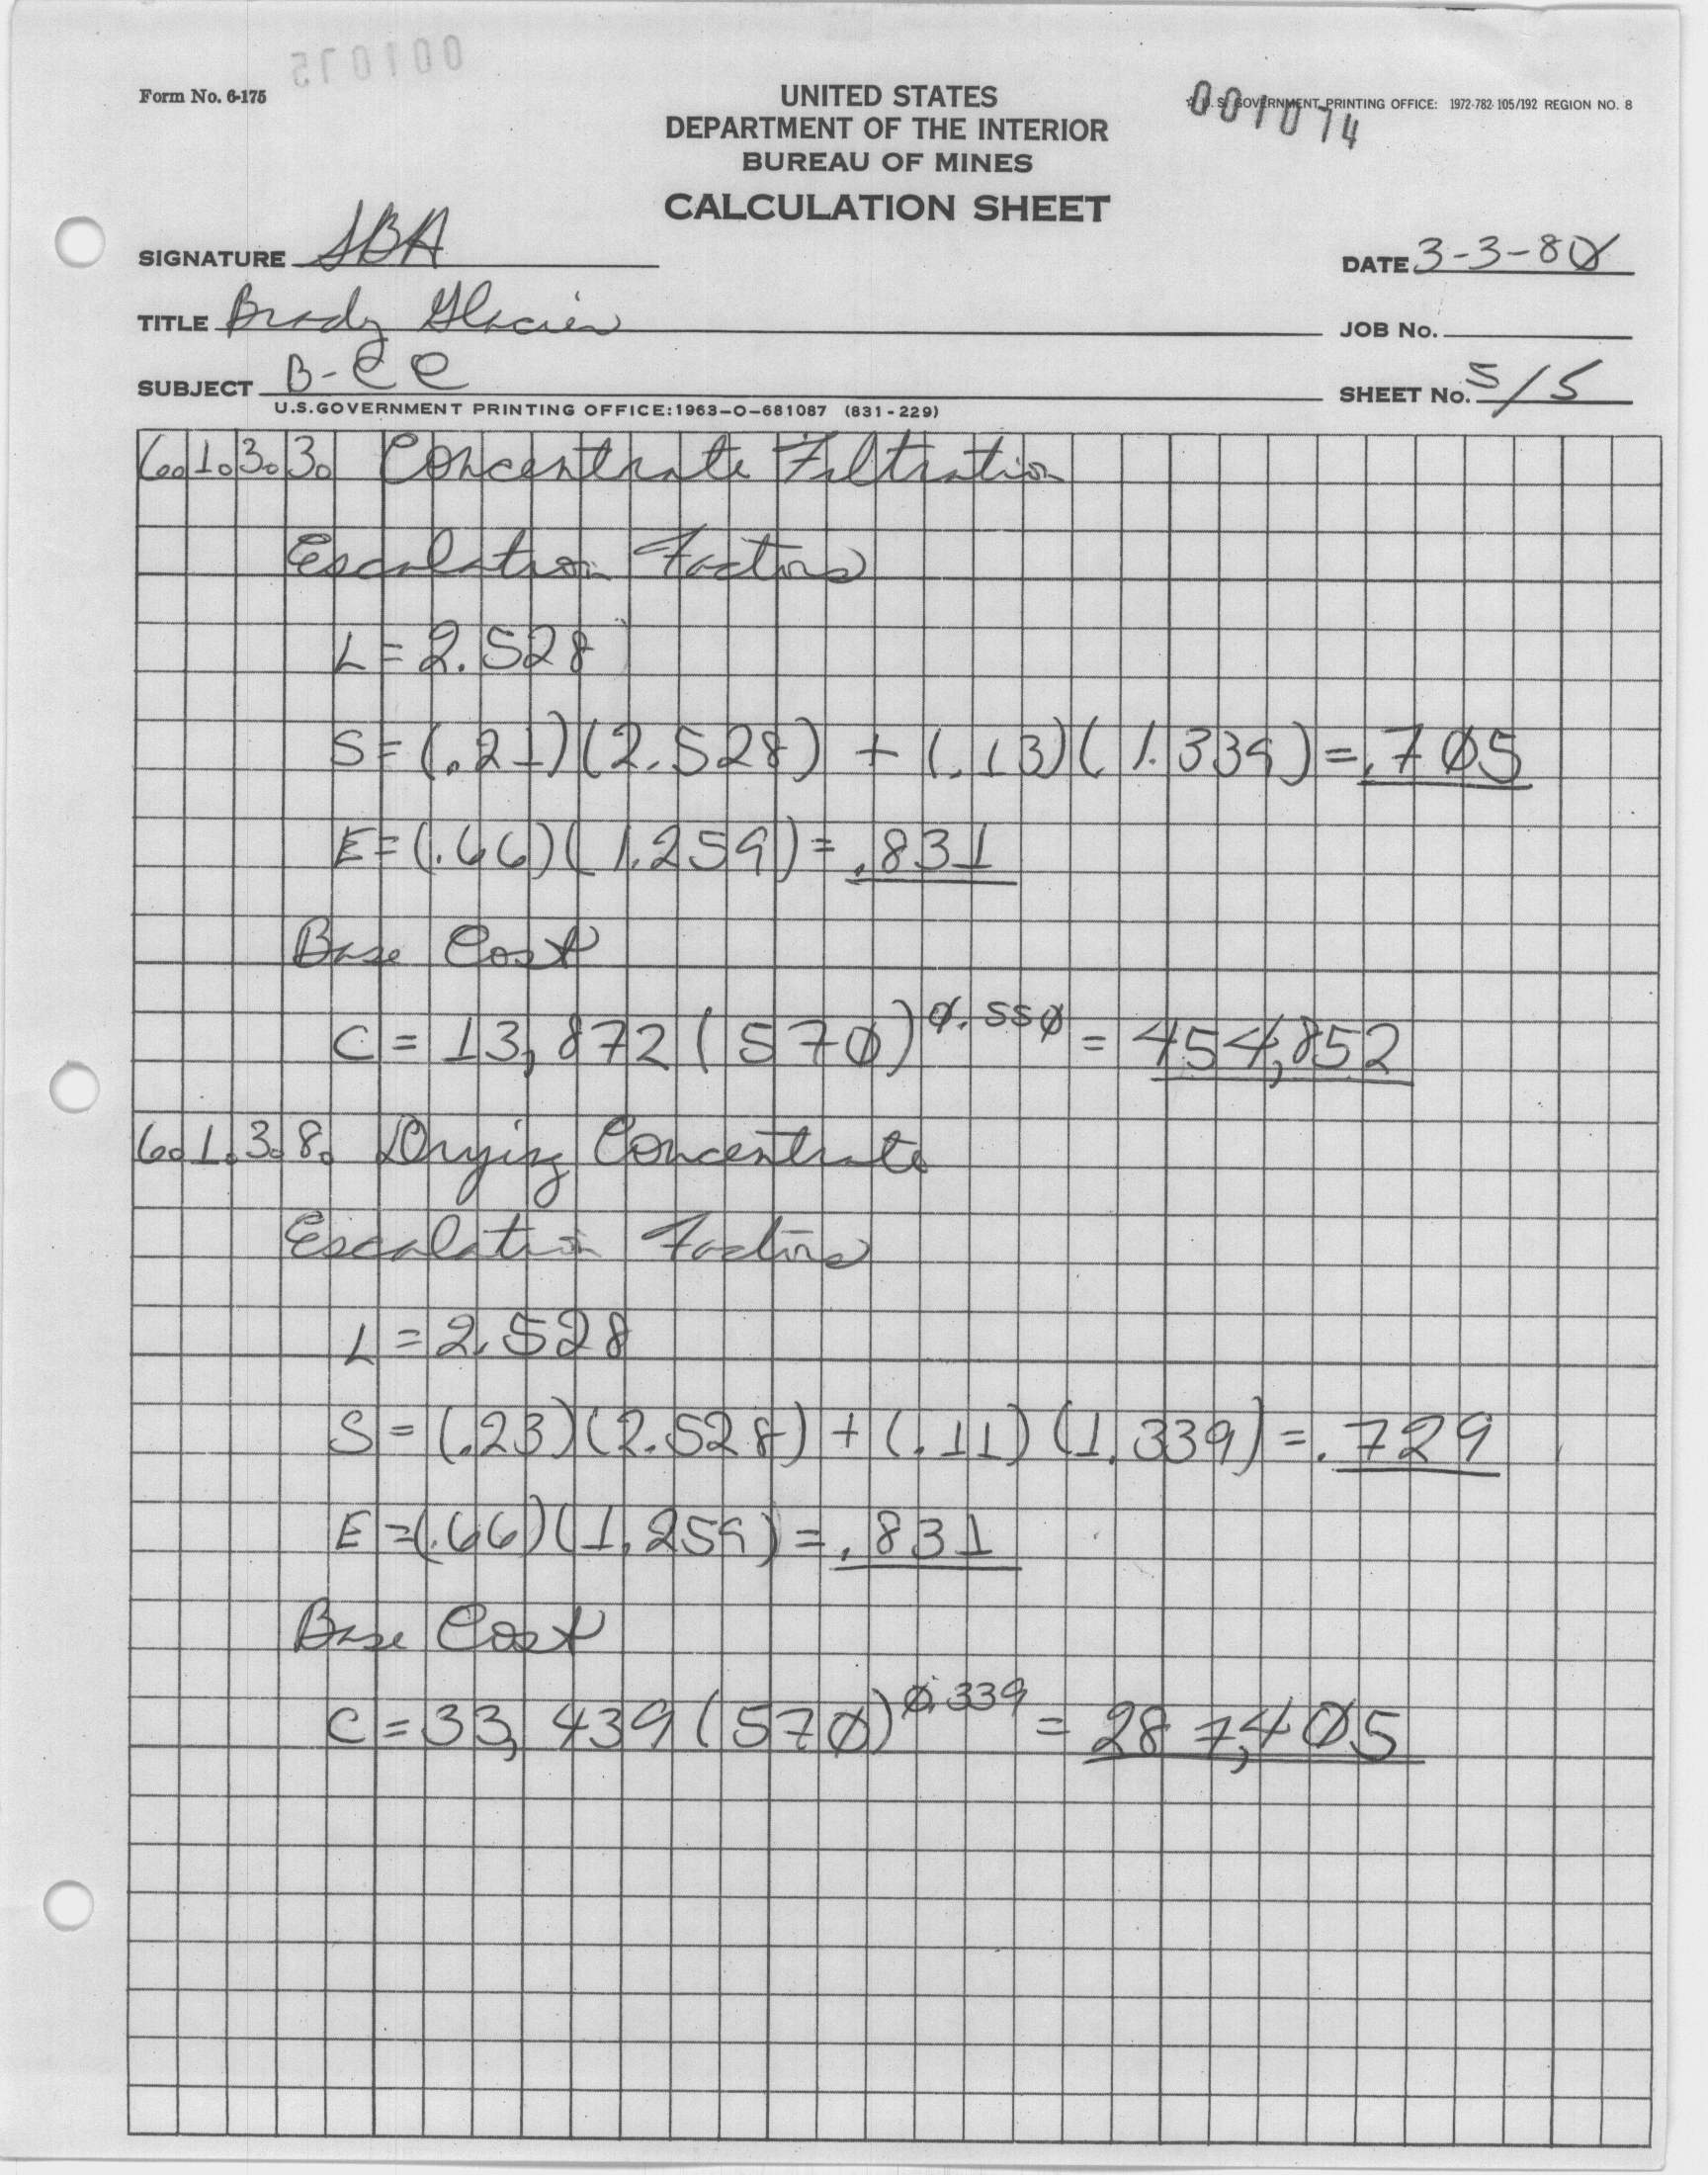 001075
Form No. 6-175
UNITED STATES
DEPARTMENT OF THE INTERIOR
BUREAU OF MINES
CALCULATION SHEET
☆ U.S. GOVERNMENT PRINTING OFFICE: 1972-782-105/192 REGION NO. 8
001074
SIGNATURE SBA
DATE 3-3-80
TITLE Brady Glacier
JOB No.
SUBJECT B-CC
SHEET No. 5/5
U.S.GOVERNMENT PRINTING OFFICE:1963-O-681087 (831-229)
6.1.3.3. Concentrate Filtration
Escalation Factors
L = 2.528
S = (.21)(2.528) + (.13)(1.339) = .705
E = (.66)(1.259) = .831
Base Cost
C = 13,872 (570)^0.550 = 454,852
6.1.3.8. Drying Concentrate
Escalation Factors
L = 2.528
S = (.23)(2.528) + (.11)(1.339) = .729
E = (.66)(1.259) = .831
Base Cost
C = 33,439 (570)^0.339 = 287,405